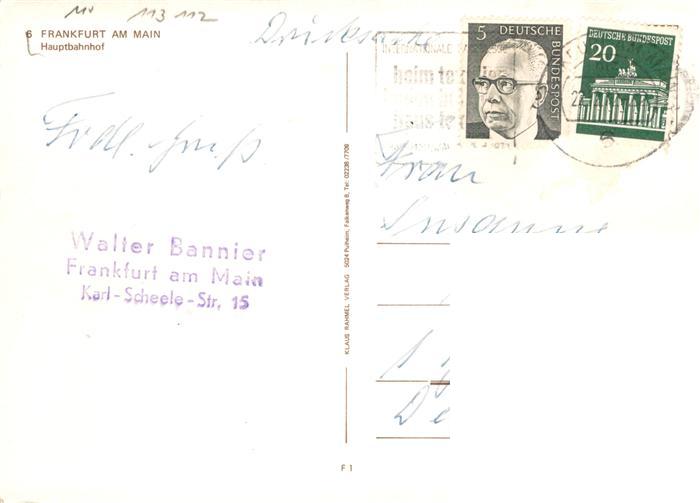 113 112
6 FRANKFURT AM MAIN
Hauptbahnhof
Drucksache
5
DEUTSCHE
BUNDESPOST
DEUTSCHE BUNDESPOST
20
INTERNATIONALE
heimtextil
6
Frdl. Gruß
Frau
Susanne
Walter Bannier
Frankfurt am Main
Karl-Scheele-Str. 15
KLAUS RAHMEL VERLAG 5024 Pulheim, Falkenweg 8, Tel: 02238/7709
De
F 1